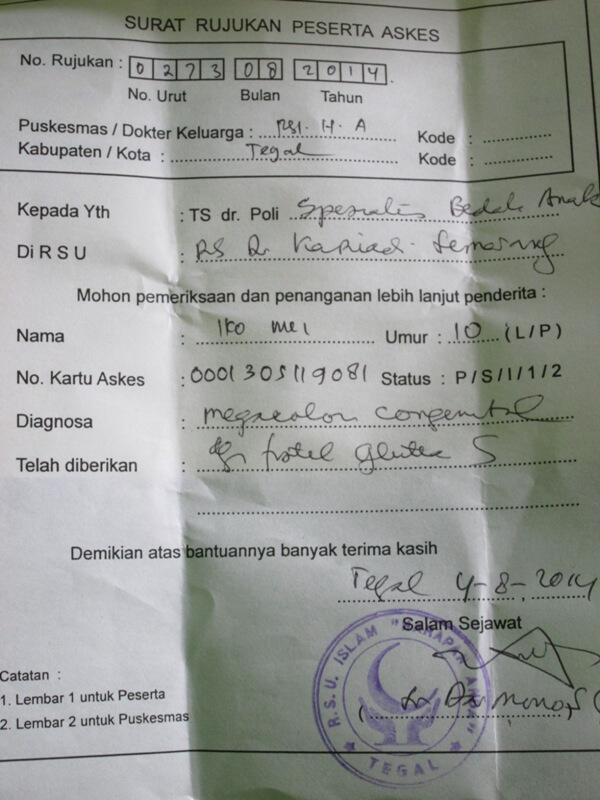 SURAT RUJUKAN PESERTA ASKES
No. Rujukan : 0273 08 2014.
No. Urut Bulan Tahun
Puskesmas / Dokter Keluarga : RSI. H. A Kode :
Kabupaten / Kota : Tegal Kode :
Kepada Yth : TS dr. Poli Spesialis Bedah Anak
Di R S U : RS Dr. Kariadi Semarang
Mohon pemeriksaan dan penanganan lebih lanjut penderita :
Nama : Iko mei Umur : 10 (L/P)
No. Kartu Askes : 0001305119081 Status : P / S / I / 1 / 2
Diagnosa : megacolon congenital
Telah diberikan : dg fistel glutea S
Demikian atas bantuannya banyak terima kasih
Tegal 4-8-2014
Salam Sejawat
R.S.U. ISLAM "HARAPAN ANDA"
TEGAL
Catatan :
1. Lembar 1 untuk Peserta
2. Lembar 2 untuk Puskesmas